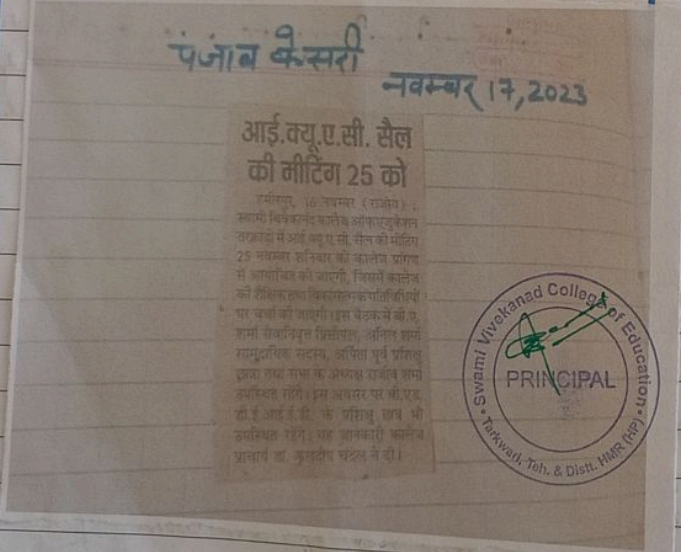 पंजाब केसरी
नवम्बर 17, 2023
आई.क्यू.ए.सी. सैल
की मीटिंग 25 को
हमीरपुर, 16 नवम्बर (राजीव) :
स्वामी विवेकानंद कालेज ऑफ एजुकेशन
तरक्वाड़ी में आई.क्यू.ए.सी. सैल की मीटिंग
25 नवम्बर शनिवार को कालेज प्रांगण
में आयोजित की जाएगी, जिसमें कालेज
की शैक्षिक तथा विकासात्मक गतिविधियों
पर चर्चा की जाएगी। इस बैठक में बी.ए.
शर्मा सेवानिवृत्त प्रिंसीपल, अनिल शर्मा
सामुदायिक सदस्य, अर्पिता पूर्व प्रशिक्षु
छात्रा तथा सभा के अध्यक्ष राजीव शर्मा
उपस्थित रहेंगे। इस अवसर पर बी.एड.
डी.ई.आई.ई.डी. के प्रशिक्षु छात्र भी
उपस्थित रहेंगे। यह जानकारी कालेज
प्राचार्य डा. कुलदीप चंदेल ने दी।
Swami Vivekanad College of Education
PRINCIPAL
Tarkwari, Teh. & Distt. HMR (HP)